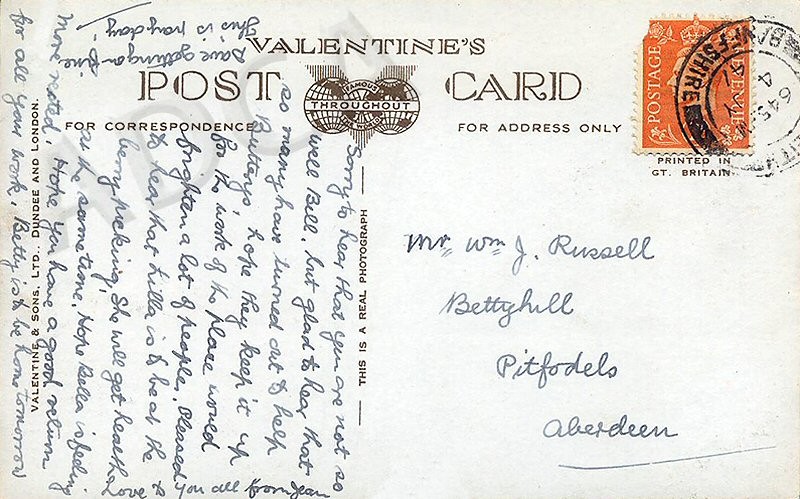 VALENTINE'S
POST CARD
FAMOUS
THROUGHOUT
THE WORLD
FOR CORRESPONDENCE
FOR ADDRESS ONLY
PRINTED IN
GT. BRITAIN
POSTAGE
REVENUE
BANFFSHIRE
645
4
47
KEITH
THIS IS A REAL PHOTOGRAPH
VALENTINE & SONS, LTD., DUNDEE AND LONDON.
Mr. Wm J. Russell
Bettyhill
Pitfodels
Aberdeen
Sorry to hear that you are not so
well Bill, but glad to hear that
so many have turned out to help
Bettys, hope they keep it up
for the work of the place would
brighten a lot of people. Pleased
to hear that Lilla is to be at the
berry picking, she will get health
at the same time. Hope Bella is feeling
more rested, Hope you have a good return
for all your work, Betty is to be home tomorrow
Dave getting on fine
This is pay day!
Love to you all from Jean
ADCA